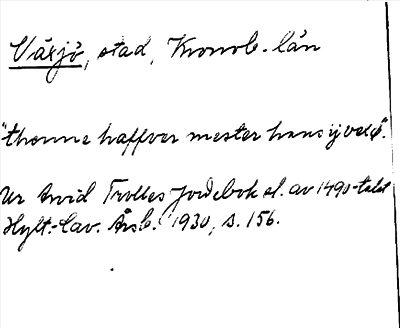 Växjö, stad, Kronob. län
"thenne haffver mester hans i vexiö".
Ur Arvid Trolles Jordebok sl. av 1490-talet
Hylt.-Cav. Årsb. 1930, s. 156.